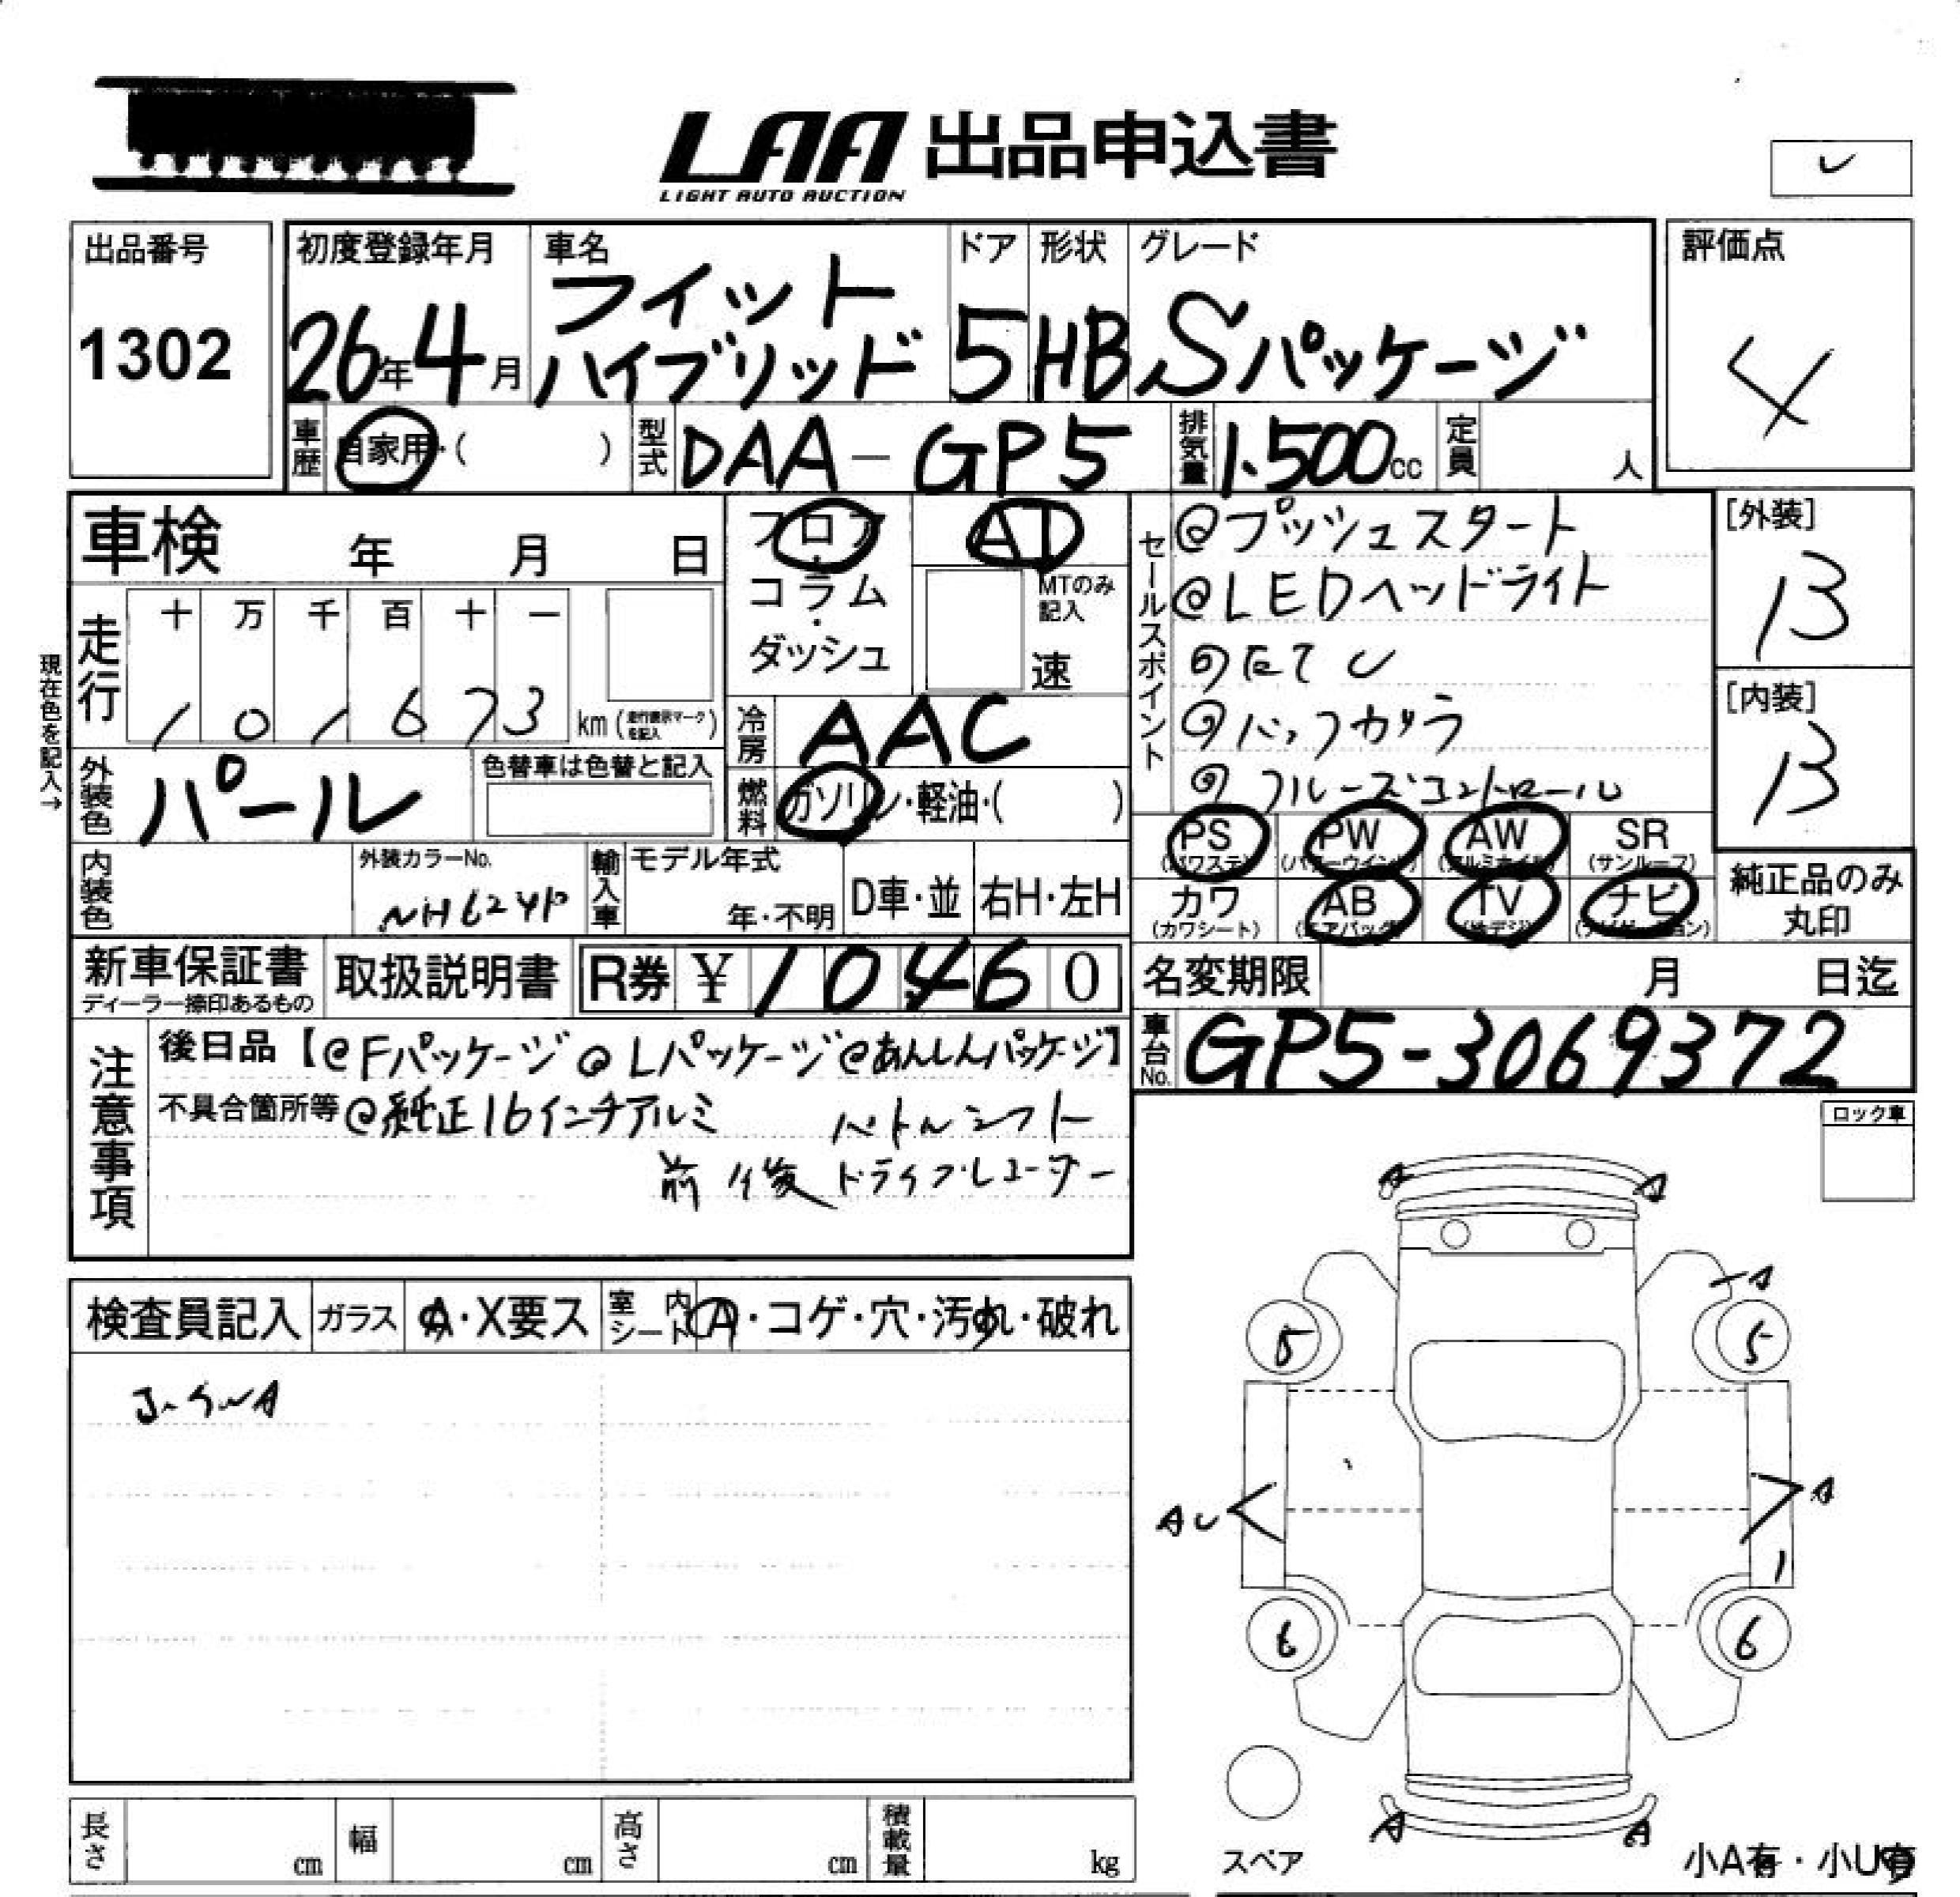 LAA 出品申込書
LIGHT AUTO AUCTION
出品番号
1302
初度登録年月
26年4月
車名
フィット
ハイブリッド
ドア
5
形状
HB
グレード
Sパッケージ
評価点
4
車歴 自家用・( )
型式 DAA-GP5
排気量 1.500cc
定員 人
車検 年 月 日
フロア・コラム・ダッシュ
AT
MTのみ記入
速
セールスポイント
@プッシュスタート
@LEDヘッドライト
@バックカメラ
@クルーズコントロール
[外装]
B
[内装]
B
現在色を記入→
走行
十 万 千 百 十 一
1 0 1 6 7 3 km (走行表示マークを記入)
冷房 AAC
外装色 パール
色替車は色替と記入
燃料 ガソリン・軽油・( )
PS (パワステ) PW (パワーウインドウ) AW (アルミホイル) SR (サンルーフ)
カワ (カワシート) AB (エアバック) TV (地デジ) ナビ (ナビゲーション)
純正品のみ丸印
内装色
外装カラーNo.
NH624P
輸入車
モデル年式
年・不明
D車・並
右H・左H
新車保証書
ディーラー捺印あるもの
取扱説明書
R券 ¥10460
名変期限 月 日迄
車台No. GP5-3069372
注意事項
後日品【@Fパッケージ@Lパッケージ@あんしんパッケージ】
不具合箇所等@純正16インチアルミ パドルシフト
前後ドライブレコーダー
ロック車
検査員記入 ガラス A・X要ス 室内シート A・コゲ・穴・汚れ・破れ
A A
A
5 5
A
A
1
6 6
A A
スペア
小A有・小U有
長さ cm 幅 cm 高さ cm 積載量 kg